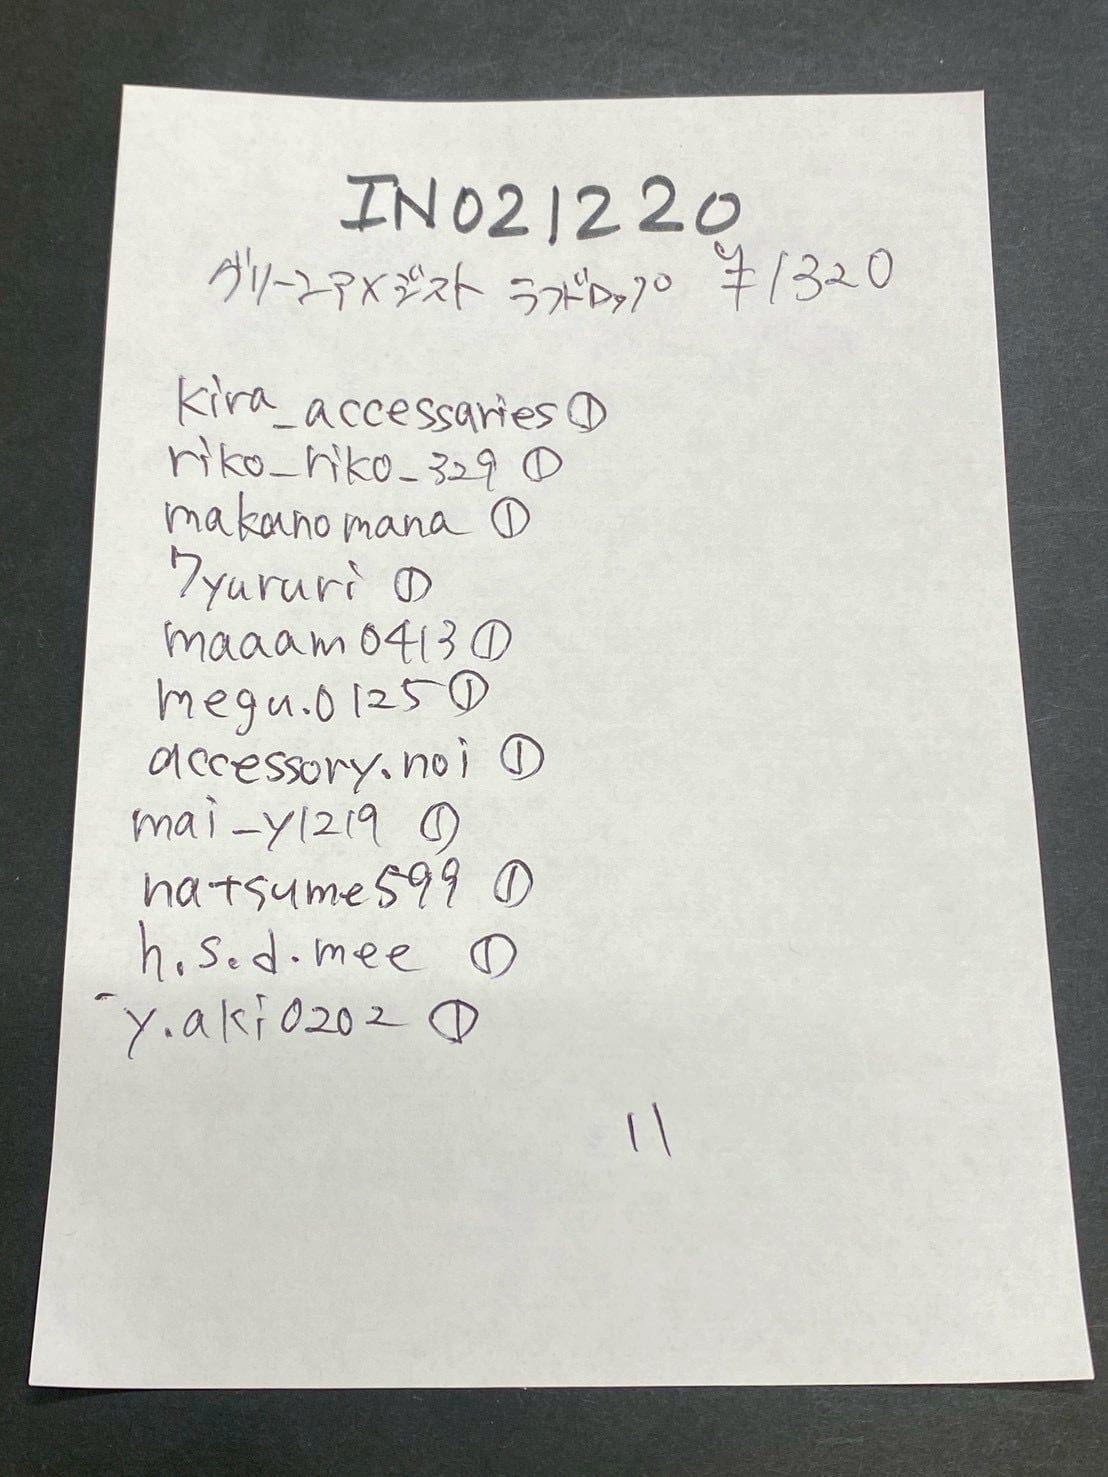 IN021220
グリーンアメジスト ラフドロップ ¥1320
kira_accessaries①
riko_riko_329 ①
makanomana ①
7yururi ①
maaam0413①
megu.0125①
accessory.noi ①
mai_y1219 ①
natsume599 ①
h.s.d.mee ①
y.aki0202 ①
11